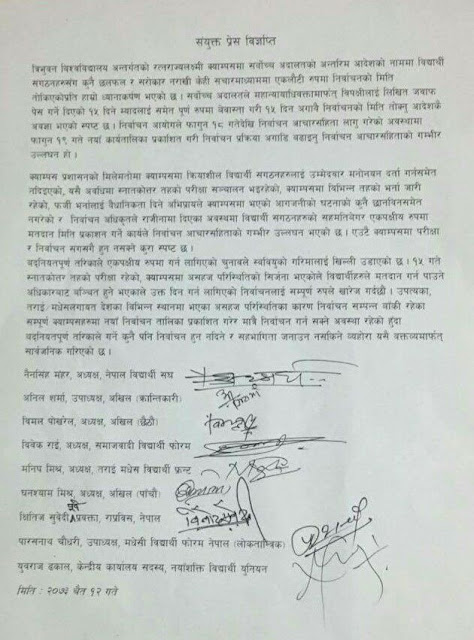 संयुक्त प्रेस विज्ञप्ति
त्रिभुवन विश्वविद्यालय अन्तर्गतको रत्नराज्यलक्ष्मी क्याम्पसमा सर्वोच्च अदालतको अन्तरिम आदेशको नाममा विद्यार्थी
संगठनहरुसंग कुनै छलफल र सरोकार नराखी केही संचारमाध्यममा एकलौटी रुपमा निर्वाचनको मिति
तोकिएकोप्रति हाम्रो ध्यानाकर्षण भएको छ । सर्वोच्च अदालतले महान्यायाधिवक्तामार्फत् विपक्षीलाई लिखित जवाफ
पेस गर्न दिएको १५ दिने म्यादलाई समेत पूर्ण रुपमा बेवास्ता गरी १५ दिन अगावै निर्वाचनको मिति तोक्नु आदेशकै
अवज्ञा भएको स्पष्ट छ । निर्वाचन आयोगले फागुन १८ गतेदेखि निर्वाचन आचारसंहिता लागु गरेको अवस्थामा
फागुन १९ गते नयां कार्यतालिका प्रकाशित गरी निर्वाचन प्रक्रिया अगाडि बढाइनु निर्वाचन आचारसंहिताको गम्भीर
उल्लघन हो ।
क्याम्पस प्रशासनको मिलेमतोमा क्याम्पसमा क्रियाशील विद्यार्थी संगठनहरुलाई उम्मेदवार मनोनयन दर्ता गर्नसमेत
नदिइएको, यसै अवधिमा स्नातकोत्तर तहको परीक्षा सञ्चालन भइरहेको, क्याम्पसमा विभिन्न तहको भर्ना जारी
रहेको, फर्जी भर्नालाई वैधानिकता दिने अभिप्रायले क्याम्पसमा भएको आगजनीको घटनाको कुनै छानविनसमेत
नगरेको र निर्वाचन अधिकृतले राजीनामा दिएका अवस्थमा विद्यार्थी संगठनहरुको सहमतिबेगर एकपक्षीय रुपमा
मतदान मिति प्रकाशन गर्ने कार्यले निर्वाचन आचारसंहिताको गम्भीर उल्लघन भएको छ । एउटै क्याम्पसमा परीक्षा
र निर्वाचन संगसगै हुन नसक्ने कुरा स्पष्ट छ ।
बदनियतपूर्ण तरिकाले एकपक्षीय रुपमा गर्न लागिएको चुनावले स्ववियुको गरिमालाई खिल्ली उडाएको छ । १५ गते
स्नातकोत्तर तहको परीक्षा रहेको, क्याम्पसमा असहज परिस्थितिको सिर्जना भएकोले विद्यार्थीहरुले मतदान गर्न पाउने
अधिकारबाट बञ्चित हुने भएकाले उक्त दिन गर्न लागिएको निर्वाचनलाई सम्पूर्ण रुपले खारेज गर्दछौं । उपत्यका,
तराई मधेसलगायत देशका विभिन्न स्थानमा भएका असहज परिस्थितिका कारण निर्वाचन सम्पन्न बाँकी रहेका
सम्पूर्ण क्याम्पसहरुमा नयां निर्वाचन तालिका प्रकाशित गरेर मात्रै निर्वाचन गर्न सक्ने अवस्था रहेको हुंदा
बदनियतपूर्ण तरिकाले गर्ने कुनै पनि निर्वाचन हुन नदिने र सहभागिता जनाउन नसकिने व्यहोरा यसै वक्तव्यमार्फत्
सार्वजनिक गरिएको छ ।
नैनसिंह महर, अध्यक्ष, नेपाल विद्यार्थी संघ
अनिल शर्मा, उपाध्यक्ष, अखिल (क्रान्तिकारी)
विमल पोखरेल, अध्यक्ष, अखिल (छैठौं)
विवेक राई, अध्यक्ष, समाजवादी विद्यार्थी फोरम
मनिष मिश्र, अध्यक्ष, तराई मधेस विद्यार्थी फ्रन्ट
घनश्याम मिश्र, अध्यक्ष, अखिल (पांचौं)
क्षितिज सुवेदी पूर्व प्रवक्ता, राप्रविस, नेपाल
पारसनाथ चौधरी, उपाध्यक्ष, मधेसी विद्यार्थी फोरम नेपाल (लोकतान्त्रिक)
युवराज ढकाल, केन्द्रीय कार्यालय सदस्य, नयाँशक्ति विद्यार्थी युनियन
मिति : २०७३ चैत १२ गते